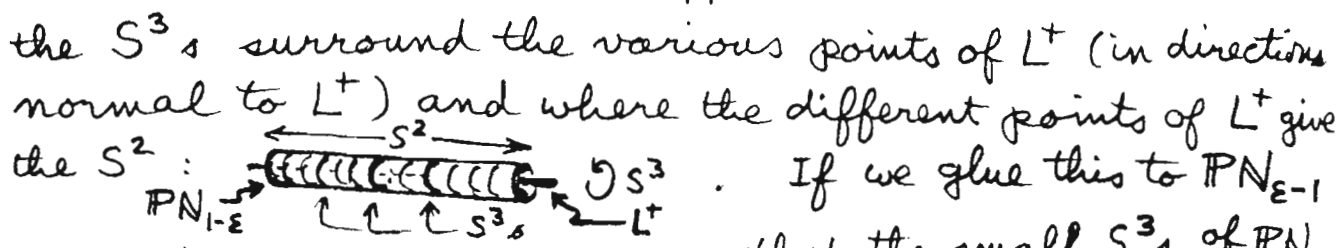 the S³s surround the various points of L⁺ (in directions
normal to L⁺) and where the different points of L⁺ give
the S² : S² S³ . If we glue this to ℙN_{ε-1}
ℙN_{1-ε} S³s L⁺
that the small S³s of ℙN